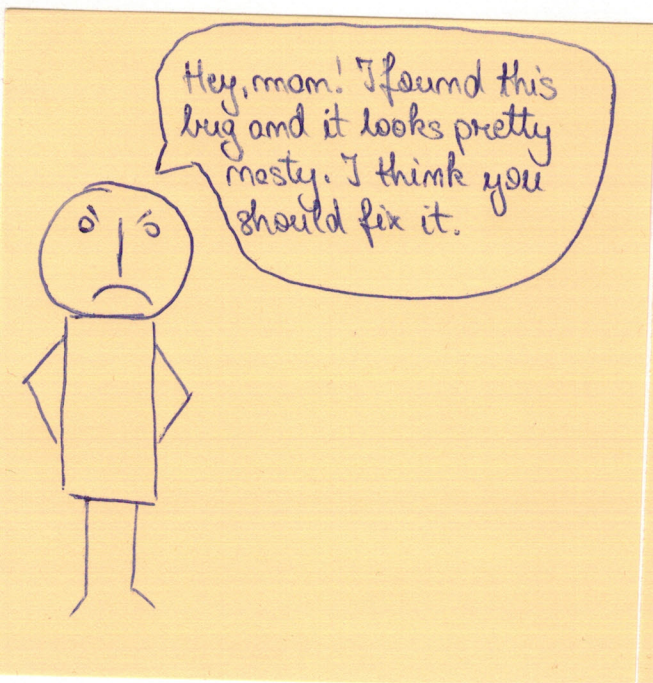 Hey, man! I found this
bug and it looks pretty
nasty. I think you
should fix it.